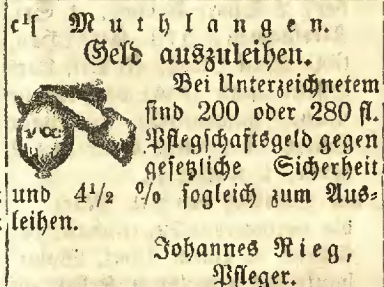 c¹[ Muthlangen.
Geld auszuleihen.
Bei Unterzeichnetem
sind 200 oder 280 fl.
Pflegschaftsgeld gegen
gesetzliche Sicherheit
und 4½ % sogleich zum Aus=
leihen.
Johannes Rieg,
Pfleger.